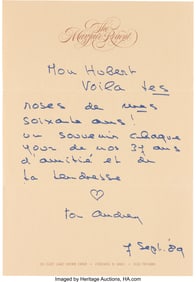 The Mayfair Regent
Mon Hubert
Voila tes
roses de mes
soixante ans!
un souvenir chaque
jour de nos 37 ans
d'amitié et de
la tendresse
ton Audrey
7 Sept. '89
Imaged by Heritage Auctions, HA.com